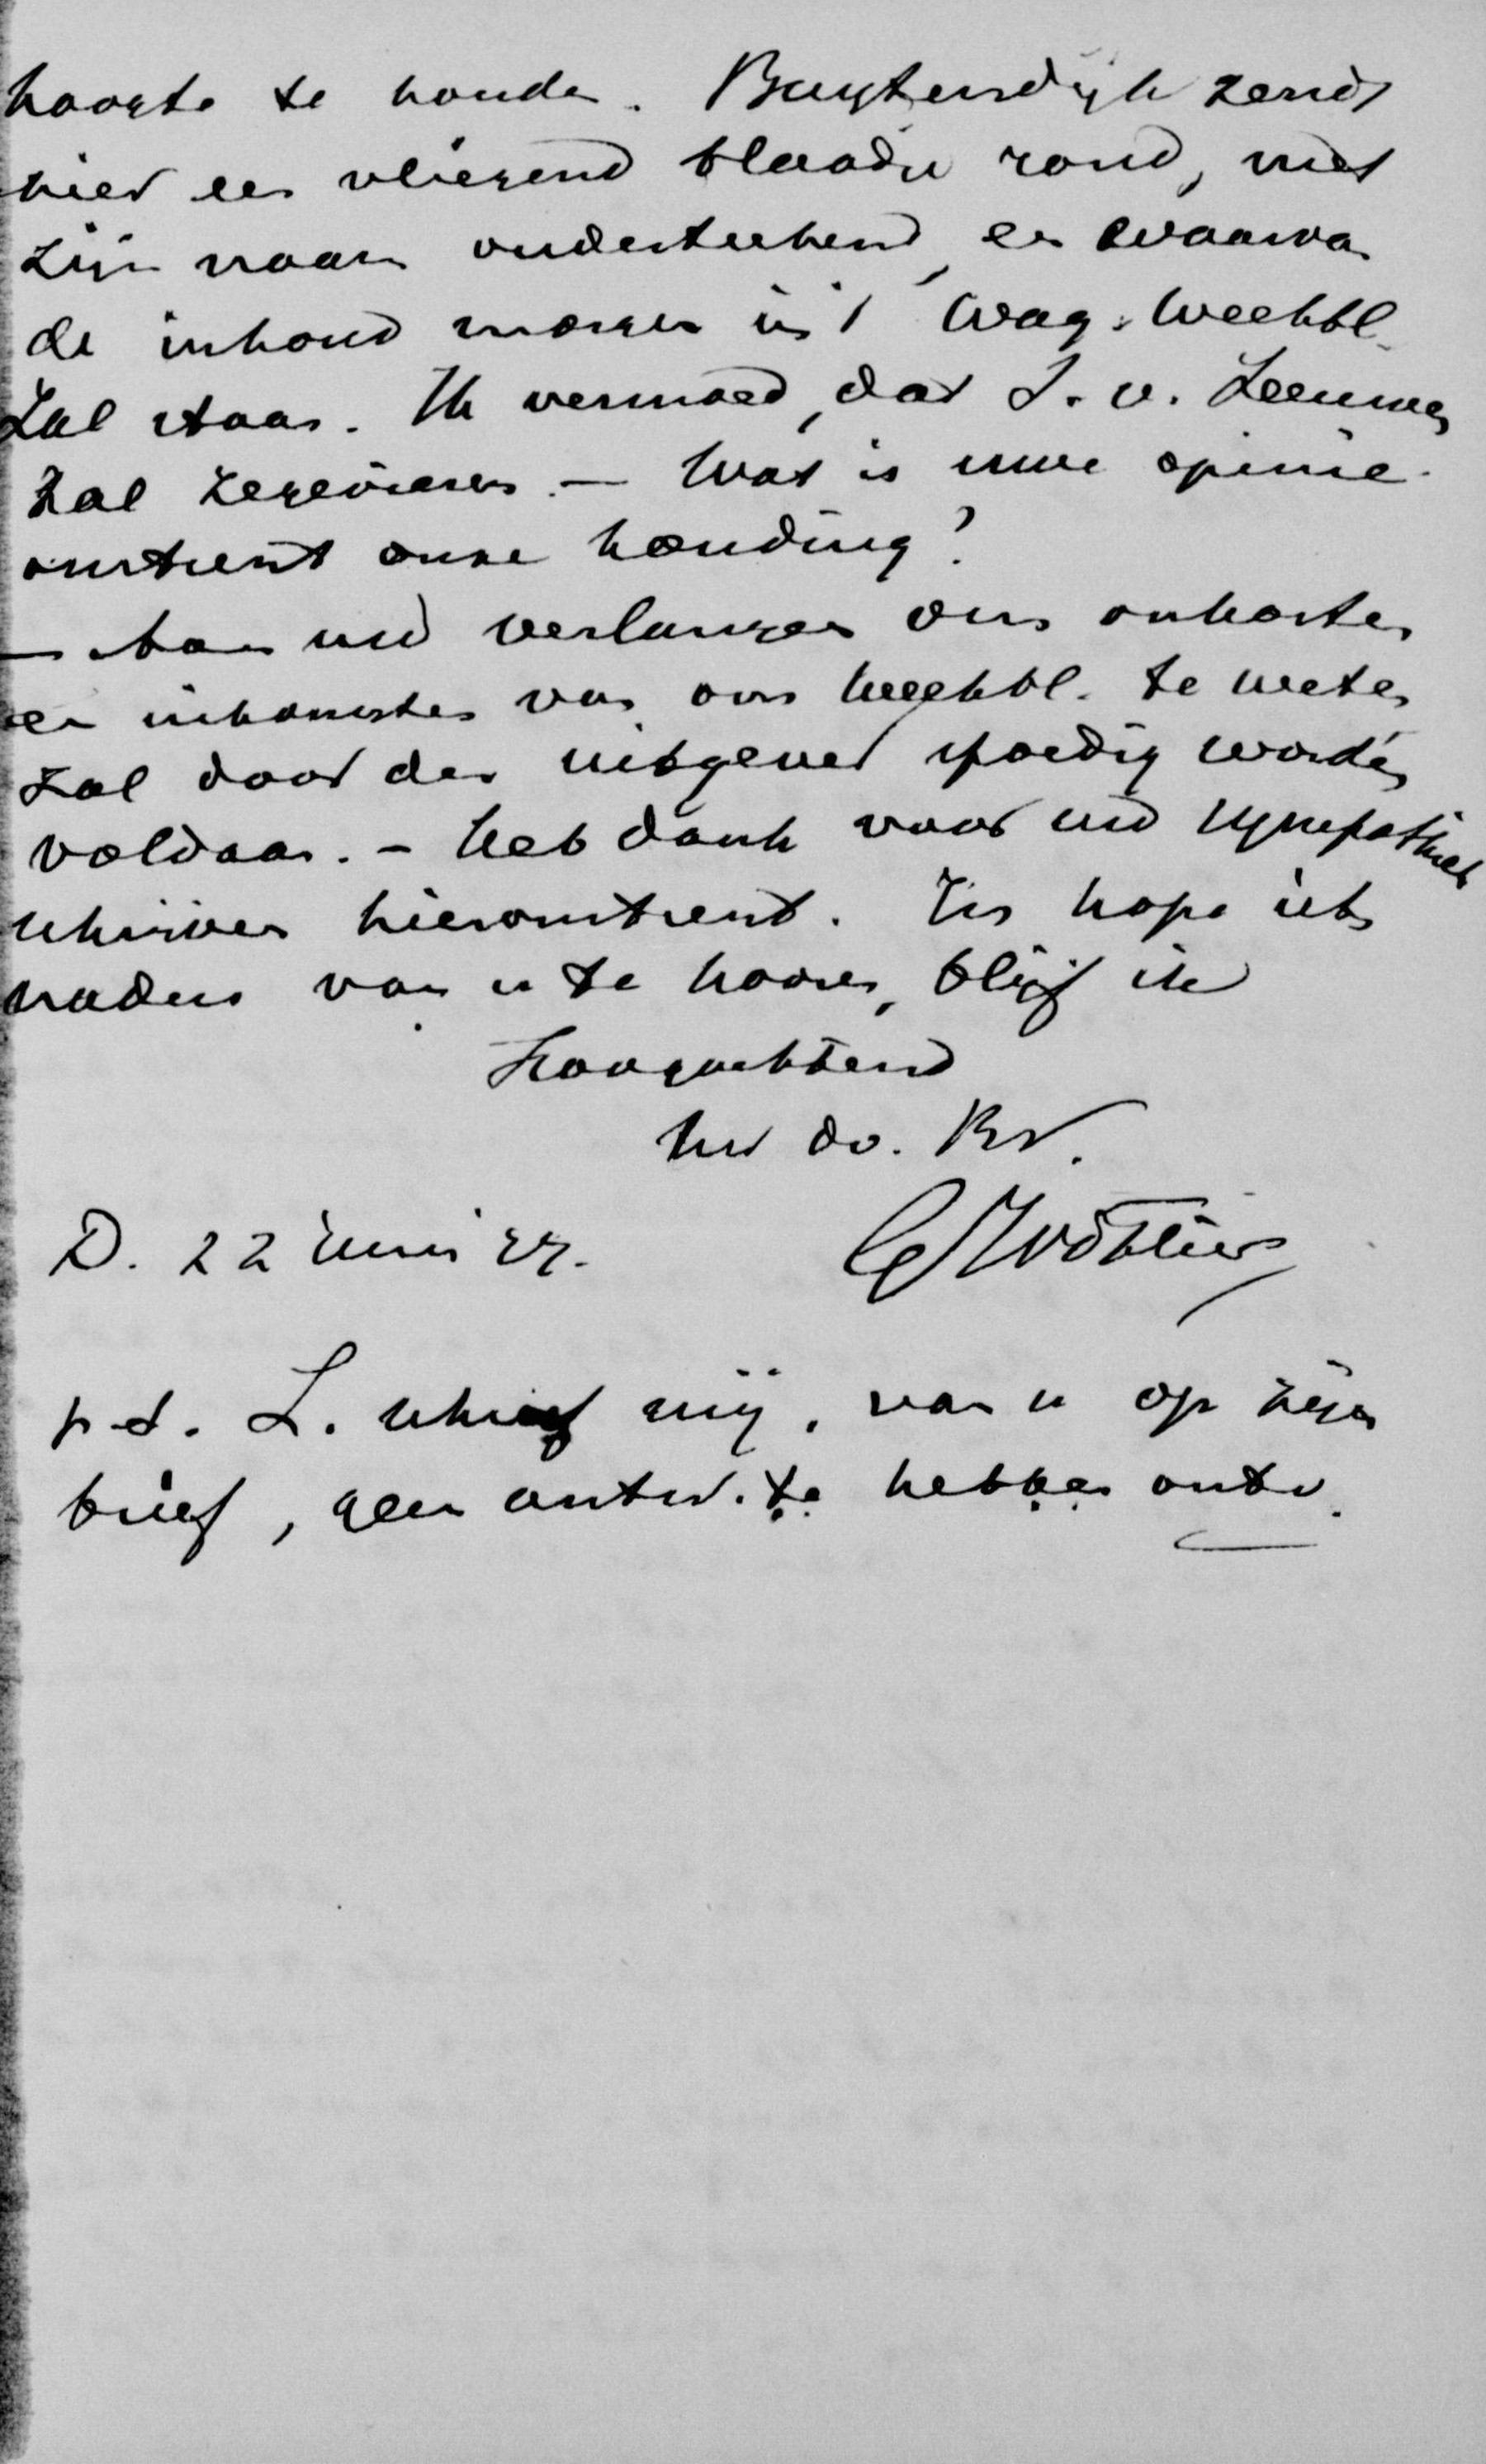 hoogte te houden. Buytendijk zendt
hier een vliegend blaadje rond, met
zijn naam onderteekend, en waarvan
de inhoud morgen in 't Wag. Weekbl.
zal staan. Ik vermoed, dat S. v. Leeuwen
zal zegevieren. – Wat is uwe opinie
omtrent onze houding?
– Aan uw verlangen om onkosten
en inkomsten van ons Weekbl. te weten,
zal door den uitgever spoedig worden
voldaan. – Heb dank voor uw sympathiek
schrijven hieromtrent. In hope iets
naders van u te hooren, blijf ik
Hoogachtend
Uw dv. Br.
D. 22 Juni
p.s. L. schreef mij, van u op zijn
brief, geen antw. te hebben ontv.